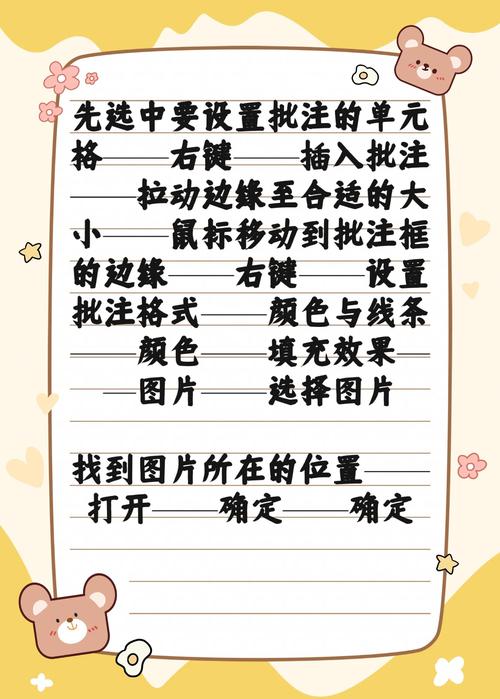 先选中要设置批注的单元
格——右键——插入批注
——拉动边缘至合适的大
小——鼠标移动到批注框
的边缘——右键——设置
批注格式——颜色与线条
——颜色——填充效果—
—图片——选择图片
找到图片所在的位置——
打开——确定——确定